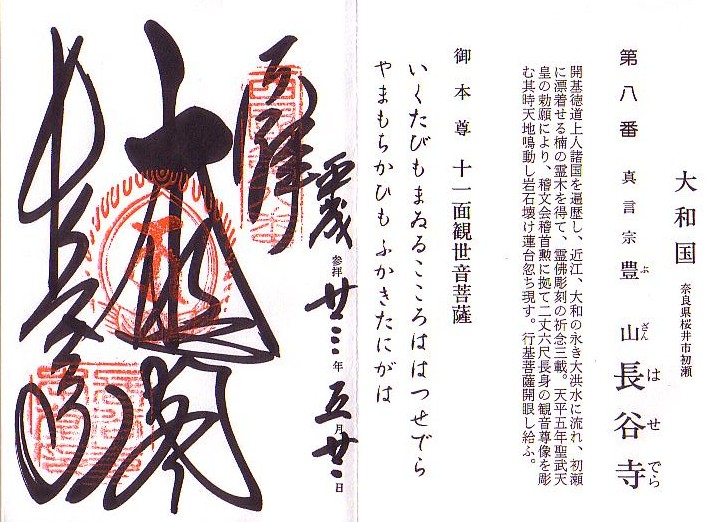 大和国 奈良県桜井市初瀬
第八番 真言宗 豊山 長谷寺
ぶ ざん は せ でら
開基徳道上人諸国を遍歴し、近江、大和の永き大洪水に流れ、初瀬
に漂着せる楠の霊木を得て、霊佛彫刻の祈念三載。天平五年聖武天
皇の勅願により、稽文会稽首勲に拠て二丈六尺長身の観音尊像を彫
む其時天地鳴動し岩石壊け蓮台忽ち現す。行基菩薩開眼し給ふ。
御本尊 十一面観世音菩薩
いくたびもまゐるこころははつせでら
やまもちかひもふかきたにがは
平成 参拝 廿三年 五月 廿二日
奉拝
大悲閣
長谷寺